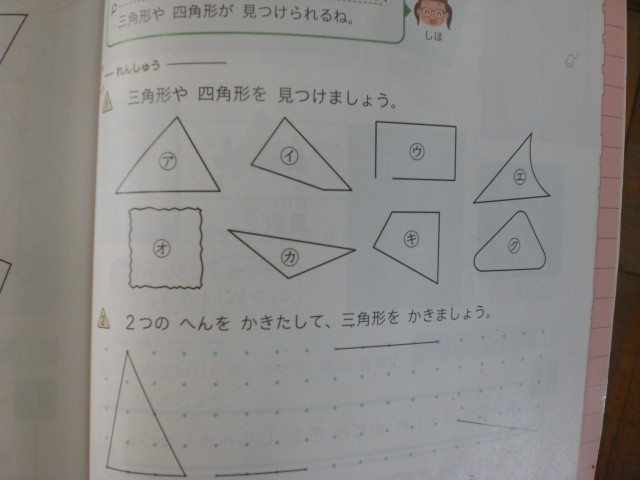 三角形や 四角形が 見つけられるね。
しほ
れんしゅう
1 三角形や 四角形を 見つけましょう。
ア イ ウ エ
オ カ キ ク
2 2つの へんを かきたして、三角形を かきましょう。